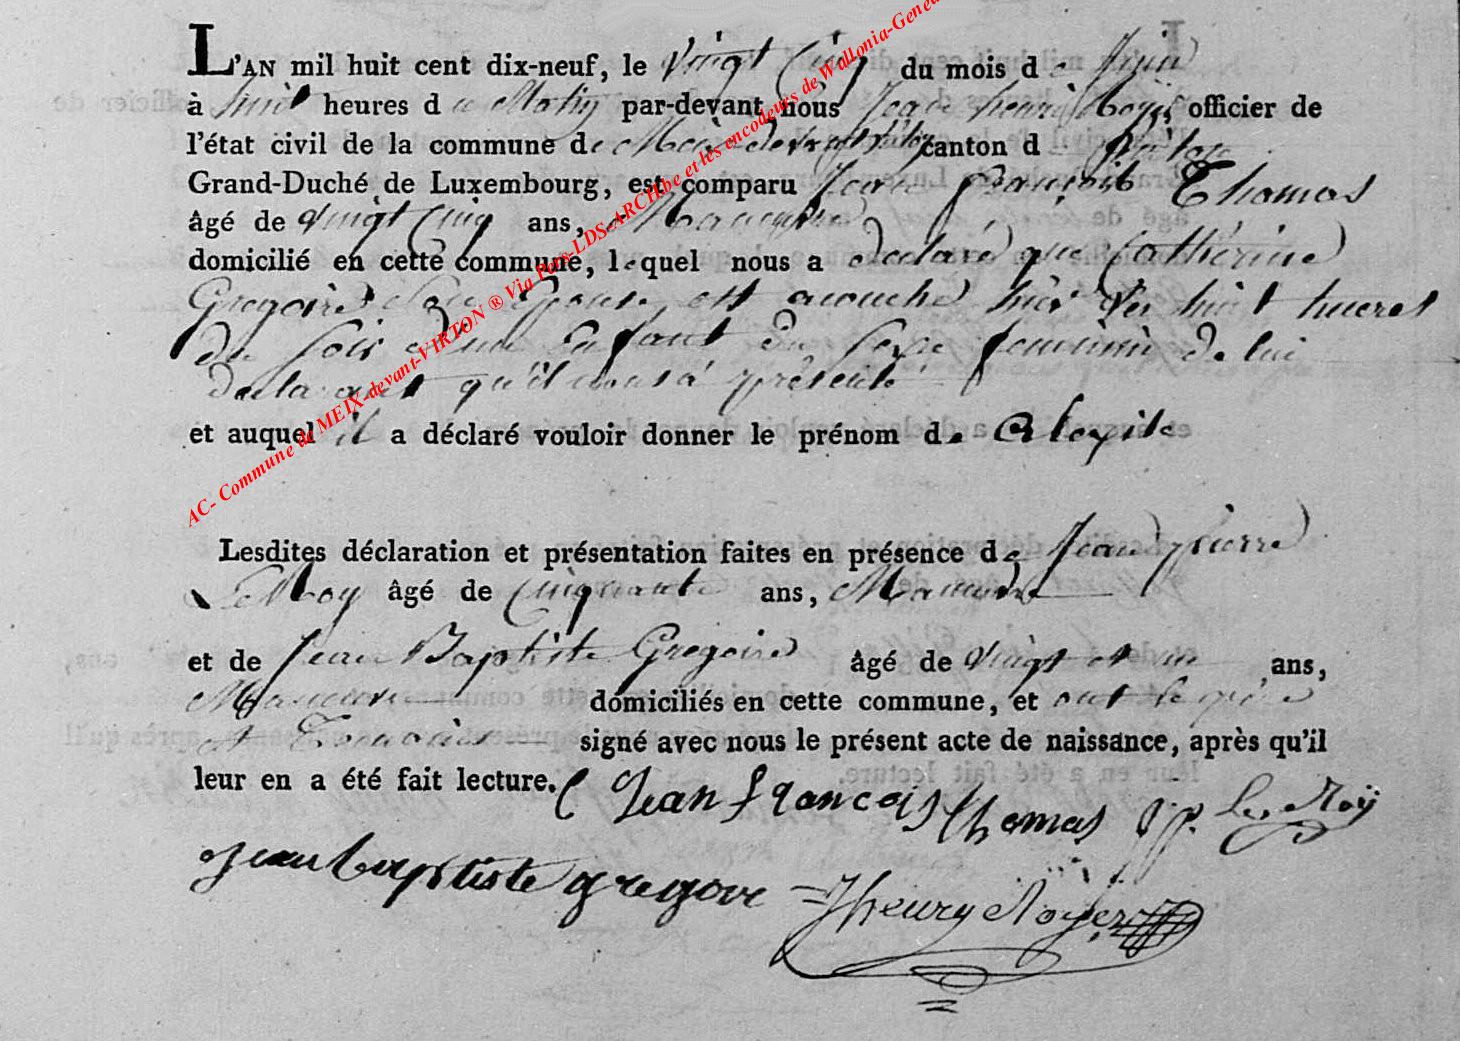 L'AN mil huit cent dix-neuf, le vingt Cinq du mois de Juin
à huit heures du Matin par-devant nous Jean henri Noÿer officier de
l'état civil de la commune de Meix devant virton canton d virton
Grand-Duché de Luxembourg, est comparu Jean françois Thomas
âgé de vingt Cinq ans, Manoeuvre
domicilié en cette commune, lequel nous a declaré que Catherine
Gregoire Son Epouse est acouché hier Les huit hueres
du soir d'un Enfant du sexe feminin de lui
declarant qu'il nous a présenté
et auquel il a déclaré vouloir donner le prénom de
Lesdites déclaration et présentation faites en présence de Jean pierre
LeRoy âgé de Cinquante ans, Manoeuvre
et de Jean Baptiste Gregoire âgé de vingt et un ans,
Manoeuvre domiciliés en cette commune, et ont le père
et Temoins signé avec nous le présent acte de naissance, après qu'il
leur en a été fait lecture. Jean francois thomas jp. Le Roÿ
jean baptiste gregoire jhenry Noÿer
AC- Commune de MEIX-devant-VIRTON ® Via Pers-LDS-ARCH.be et les encodeurs de Wallonia-Genea